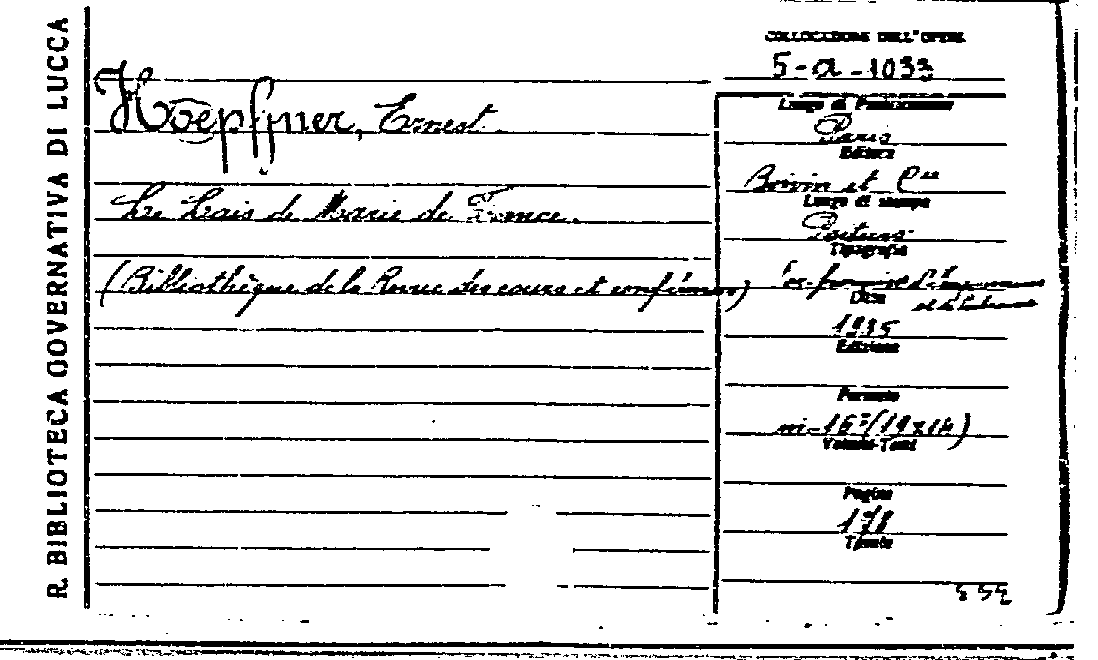 R. BIBLIOTECA GOVERNATIVA DI LUCCA
COLLOCAZIONE DELL'OPERA
5-a-1033
Hoepffner, Ernest.
Luogo di Pubblicazione
Paris
Editore
Boivin et Cie
Le Lais de Marie de France.
Luogo di stampa
Poitiers
Tipografia
(Bibliothèque de la Revue des cours et conférences)
Soc. française d'Imprimerie
et de Librairie
Data
1935
Edizione
Formato
in-16°(19x14)
Volumi-Tomi
Pagine
178
Tavole